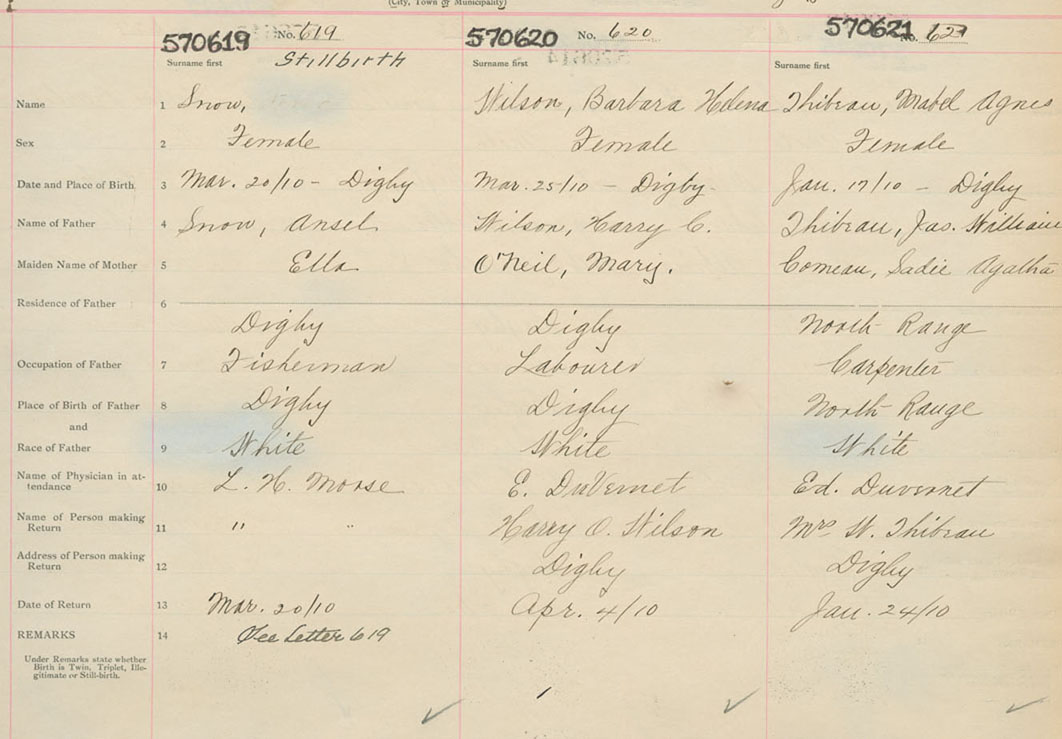 (City, Town or Municipality)
570619 No. 619
570620 No. 620
570621 No.
Surname first Stillbirth Surname first Surname first
Name 1 Snow, Wilson, Barbara Helena Thibeau, Mabel Agnes
Sex 2 Female Female Female
Date and Place of Birth, 3 Mar. 20/10 - Digby Mar. 25/10 - Digby- Jan. 17/10 - Digby
Name of Father 4 Snow, Ansel Wilson, Harry C. Thibeau, Jas. William
Maiden Name of Mother 5 Ella O'Neil, Mary. Comeau, Sadie Agatha
Residence of Father 6
Digby Digby North Range
Occupation of Father 7 Fisherman Labourer Carpenter
Place of Birth of Father 8 Digby Digby North Range
and
Race of Father 9 White White White
Name of Physician in at-
tendance 10 L. H. Morse E. DuVernet Ed. Duvernet
Name of Person making
Return 11 " " Harry O. Wilson Mrs W. Thibeau
Address of Person making
Return 12 Digby Digby
Date of Return 13 Mar. 20/10 Apr. 4/10 Jan. 24/10
REMARKS 14 See Letter 619
Under Remarks state whether
Birth is Twin, Triplet, Ille-
gitimate or Still-birth.